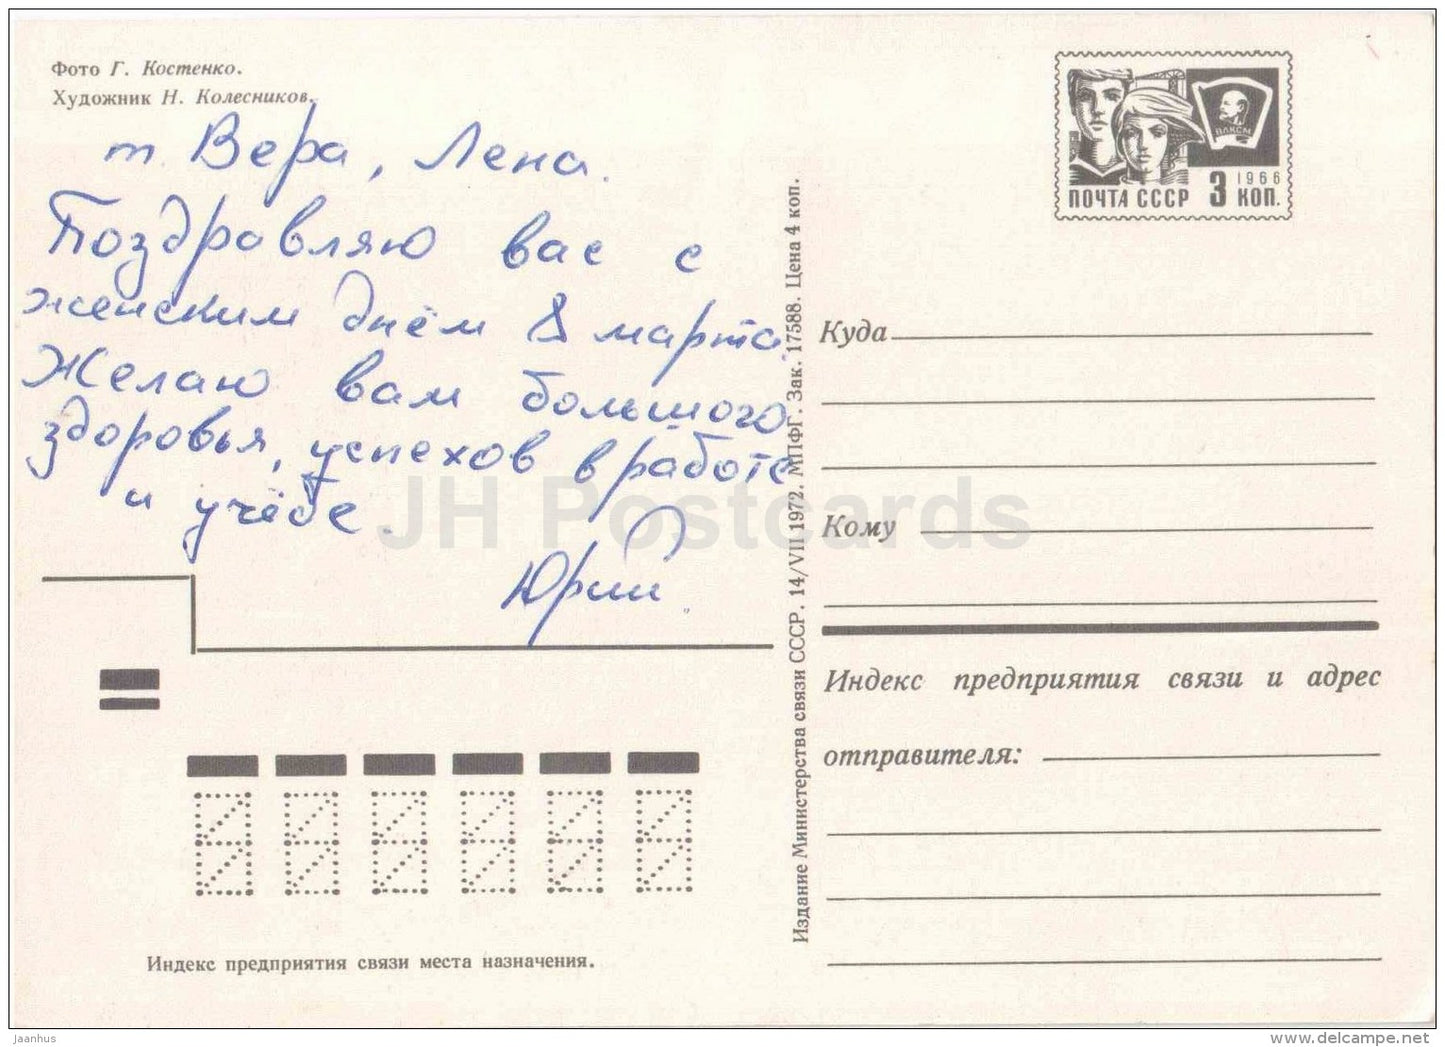 Фото Г. Костенко.
Художник Н. Колесников.
т. Вера, Лена.
Поздравляю вас с
женским днём 8 марта.
Желаю вам большого
здоровья, успехов в работе
и учёбе.
Юрий.
Индекс предприятия связи места назначения.
Издание Министерства связи СССР. 14/VII 1972. МПФГ. Зак. 17588. Цена 4 коп.
ВЛКСМ
1966
ПОЧТА СССР 3 КОП.
Куда
Кому
Индекс предприятия связи и адрес
отправителя:
JH Postcards
jaanhus
www.delcampe.net